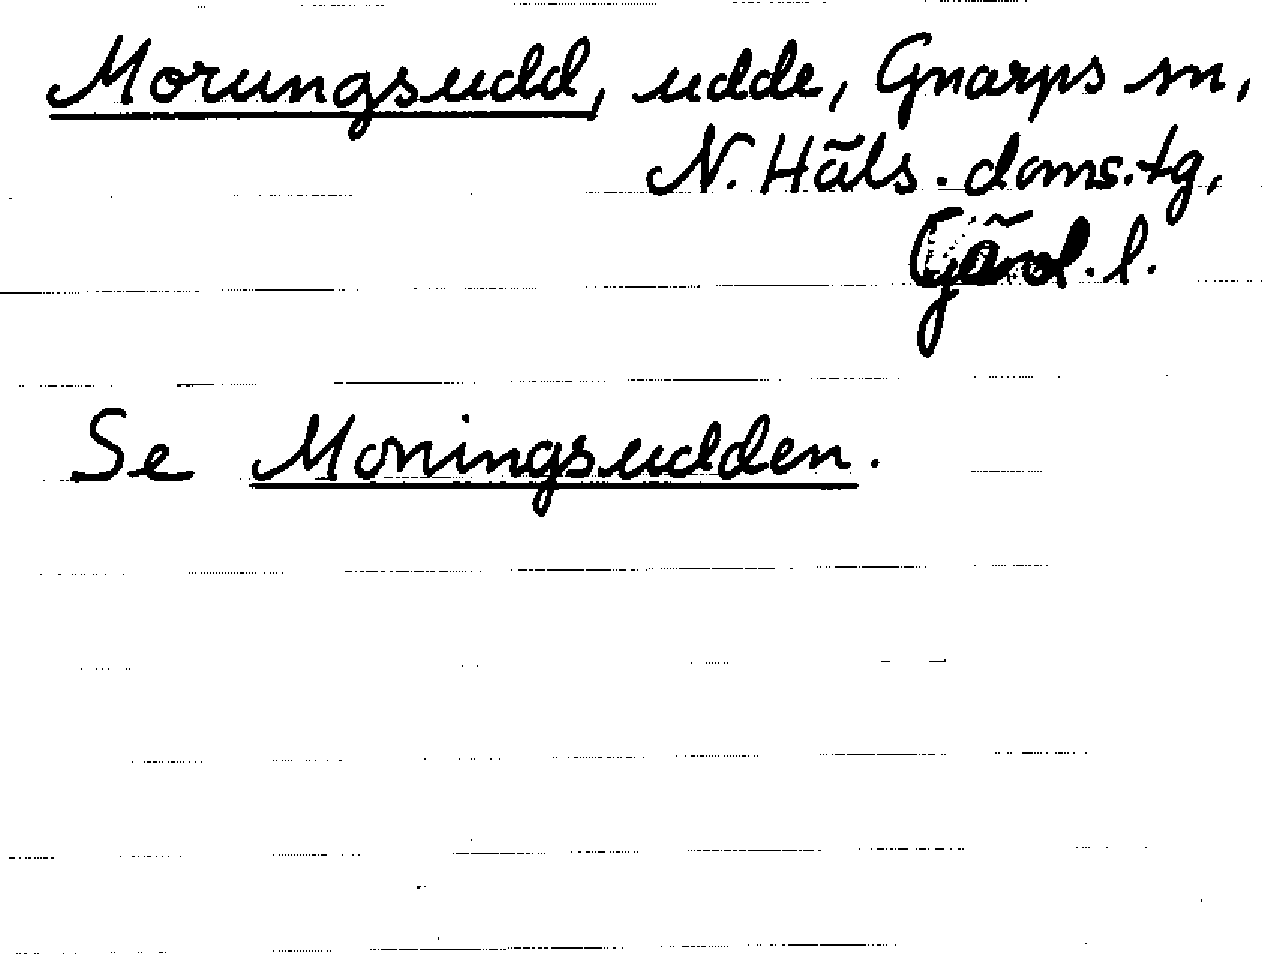 Morungsudd, udde, Gnarps sn,
N. Häls. doms.tg,
Gävl. l.
Se Moningsudden.